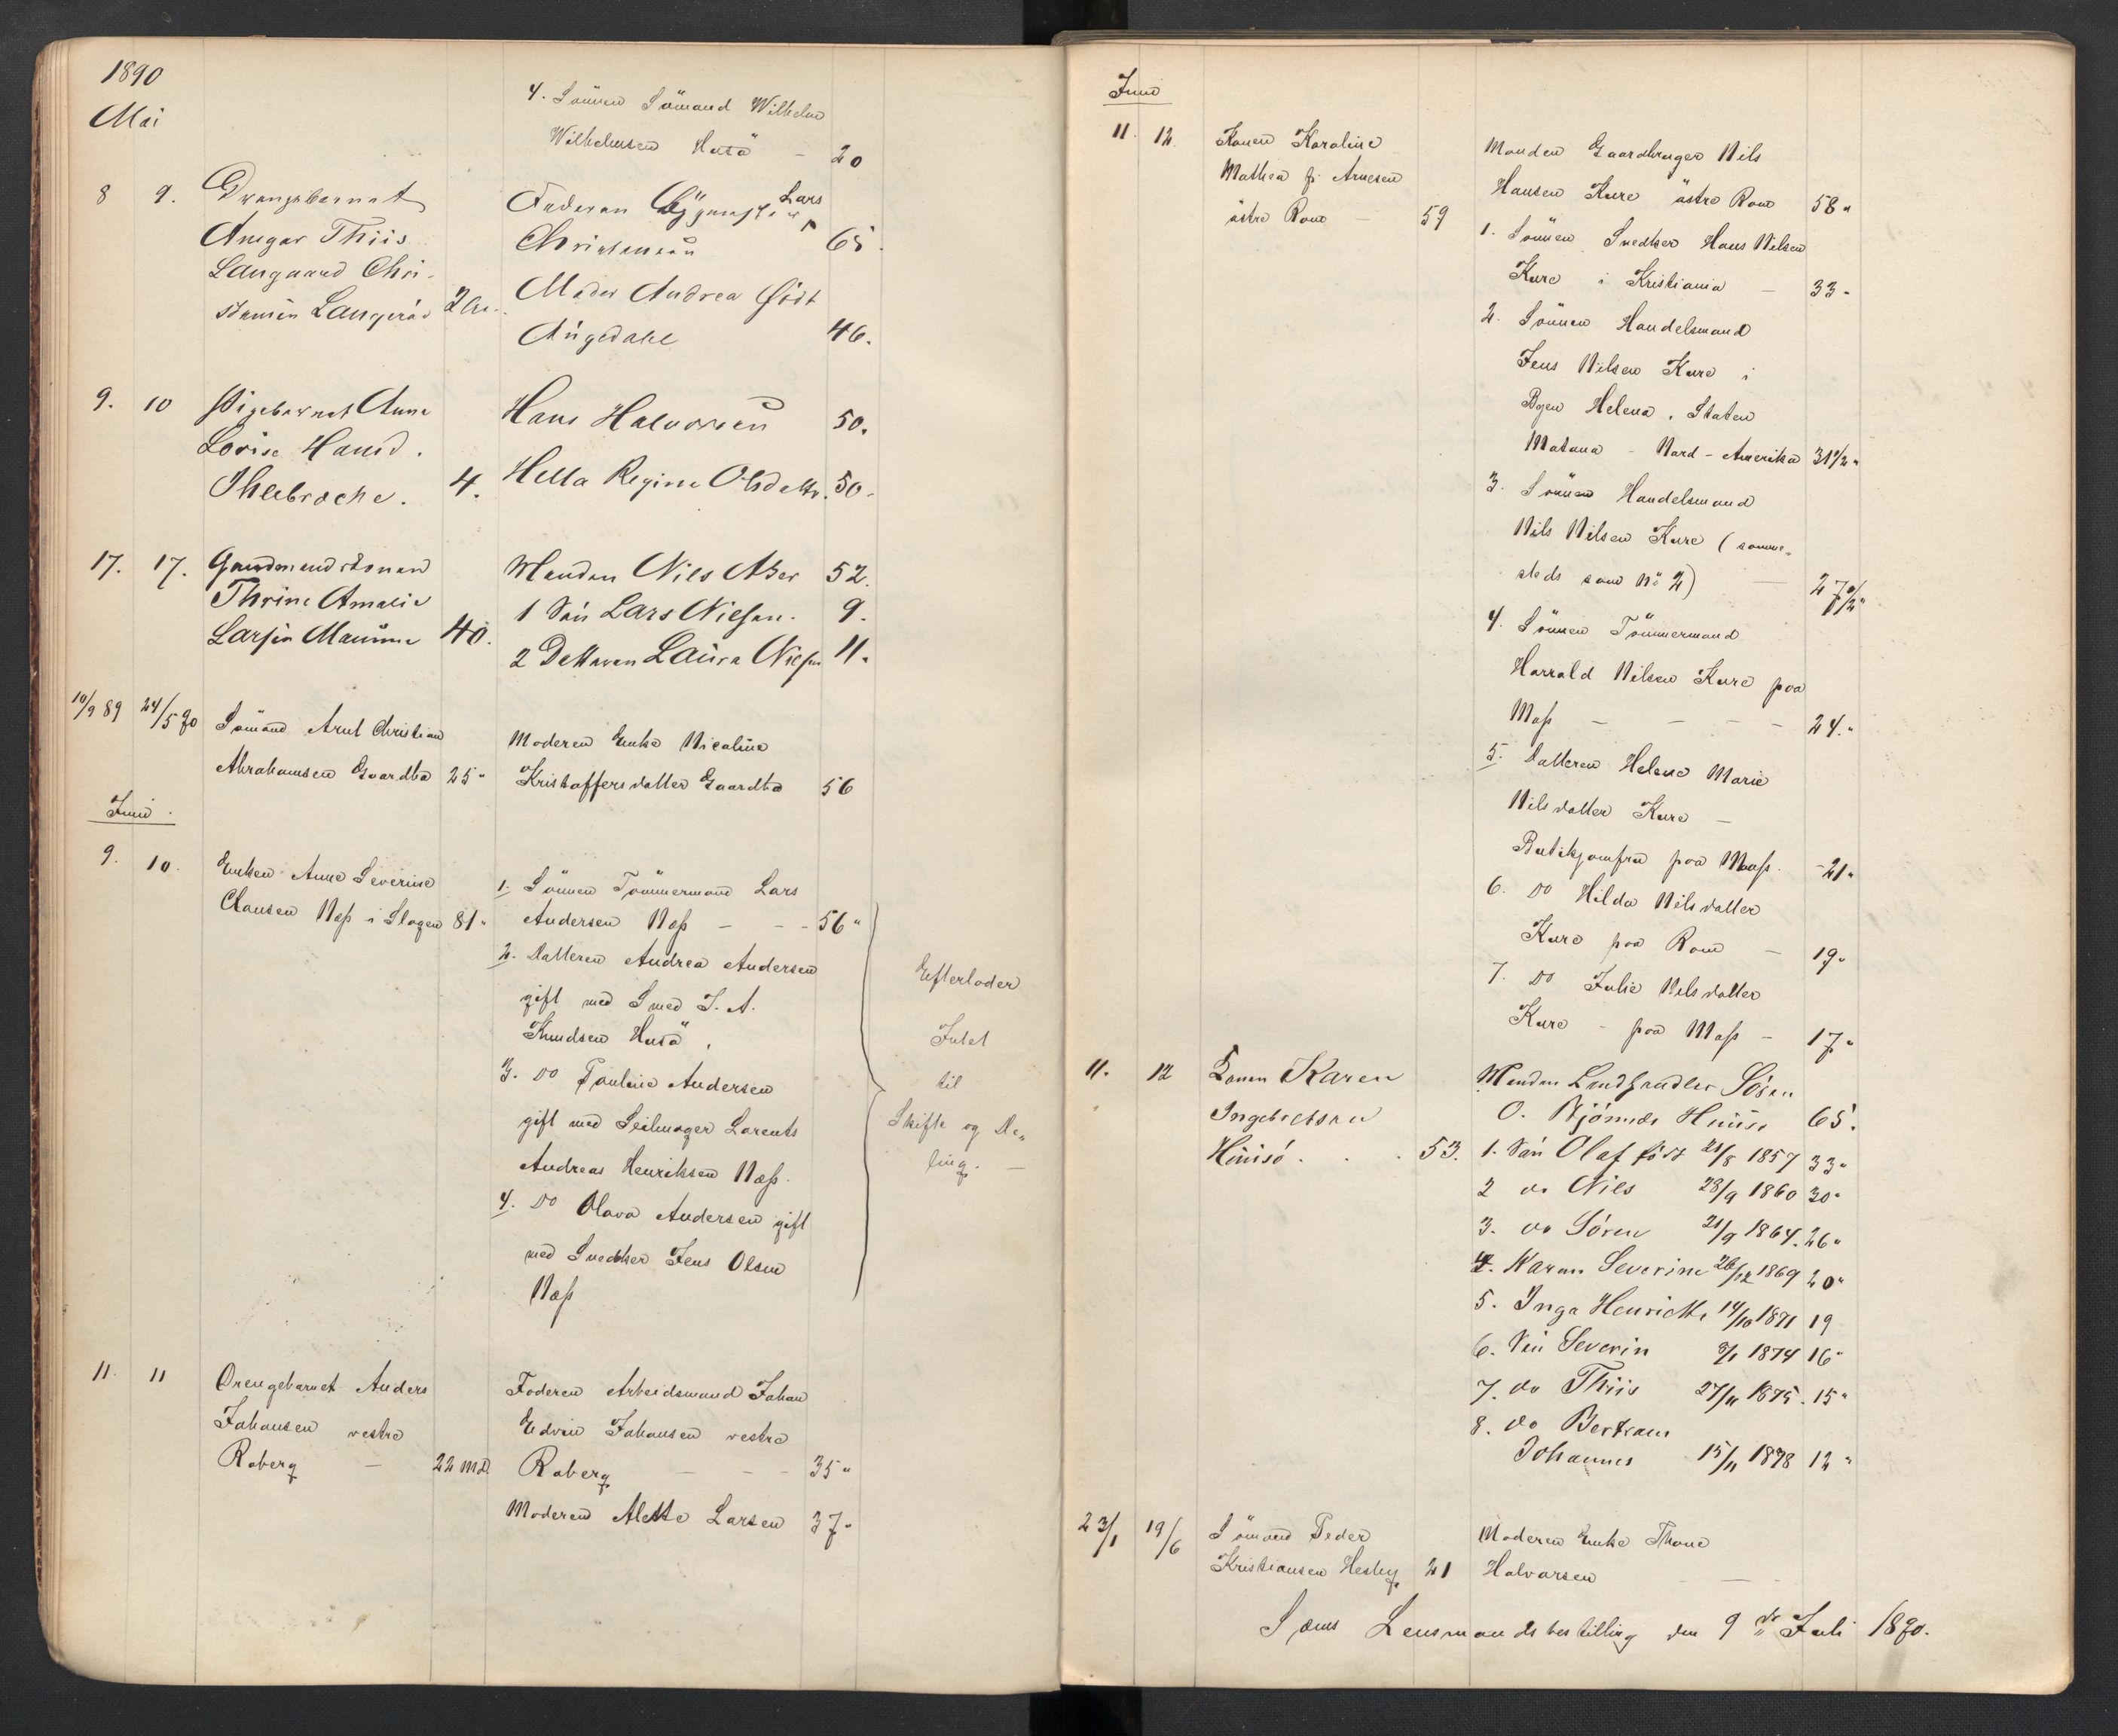 1890
Mai
4. Sönnen Sömand Wilhelm
Wilhelmsen Husö - 20
8 9. Drengebarnet
Ansgar Thiis
Langaard Chri-
stensen Langerös 2
Faderen Lars
Christensen 65.
Moder Andrea født
Augedahl 46.
9. 10 Pigebarnet Anne
Lovise Hansd.
4.
Hans Halvorsen 50.
Hella Regine Olsdattr. 50-
17. 17. Gaardmandskonen
Thrine Amalie
Larsen 40.
Manden Nils 52.
1 Sön Lars Nilsen. 9.
2 Datteren Laura Nilsen 11.
10/9 89 24/5 90 Sömand Arnt Christian
Abrahamsen Gaardbo 25"
Moderen Enke Nicoline
Kristoffersdatter Gaardbo 56
Juni.
9. 10. Enken Anne Severine
Clausen Næss i Slagen 81"
1. Sönnen Tömmermand Lars
Andersen Næss - - - 56"
2. Datteren Andrea Andersen
gift med Smed J. A.
Knudsen Husö.
3. Do Pauline Andersen
gift med Seilmager Lorents
Andreas Henriksen Næss.
4. Do Olava Andersen gift
med Snedker Jens Olsen
Næss
Efterlader
Intet
til
Skifte og De-
ling. -
11. 11 Drengebarnet Anders
Johansen vestre
Roberg - 22 md.
Faderen Arbeidsmand Johan
Edvin Johansen vestre
Roberg - - - 35"
Moderen Alette Larsen 37"
Juni
11. 12 Konen Karoline
Mathea f. Arnesen
östre Rom - 59
Manden Gaardbruger Nils
Hansen Kure östre Rom 58"
1. Sönnen Snedker Hans Nilsen
Kure i Kristiania - 33"
2. Sönnen Handelsmand
Jens Nilsen Kure i
Byen Helena, Staten
Matana - Nord-Amerika 31 1/2"
3. Sönnen Handelsmand
Nils Nilsen Kure (samme-
steds som No 2) - 27 1/2"
4. Sönnen Tömmermand
Harrald Nilsen Kure paa
Moss - - - - 24."
5. Datteren Helene Marie
Nilsdatter Kure -
Butikjomfru paa Moss. - 21"
6. Do Hilda Nilsdatter
Kure paa Rom - 19"
7. Do Julie Nilsdatter
Kure - paa Moss - 17"
11. 12 Konen Karen
Ingebretsen
Huusö . . . 53.
Manden Landhandler Sören
O. Bjönnes Huusö 65.
1. Sön Olaf født 21/8 1857 33"
2 do Nils 28/9 1860 30"
3. do Sören 21/9 1864. 26"
4. Karen Severine 26/12 1869 20"
5. Inga Henriette 14/10 1871 19
6. Sön Severin 1874 16"
7. do Thiis 27/11 1875. 15"
8. do Bertram
Johannes 15/11 1878 12"
23/1 19/6 Sömand Peder
Kristiansen Hesby 21
Moderen Enke Thone
Halvorsen - -
Sems Lensmandsbestilling den 9de Juli 1890.